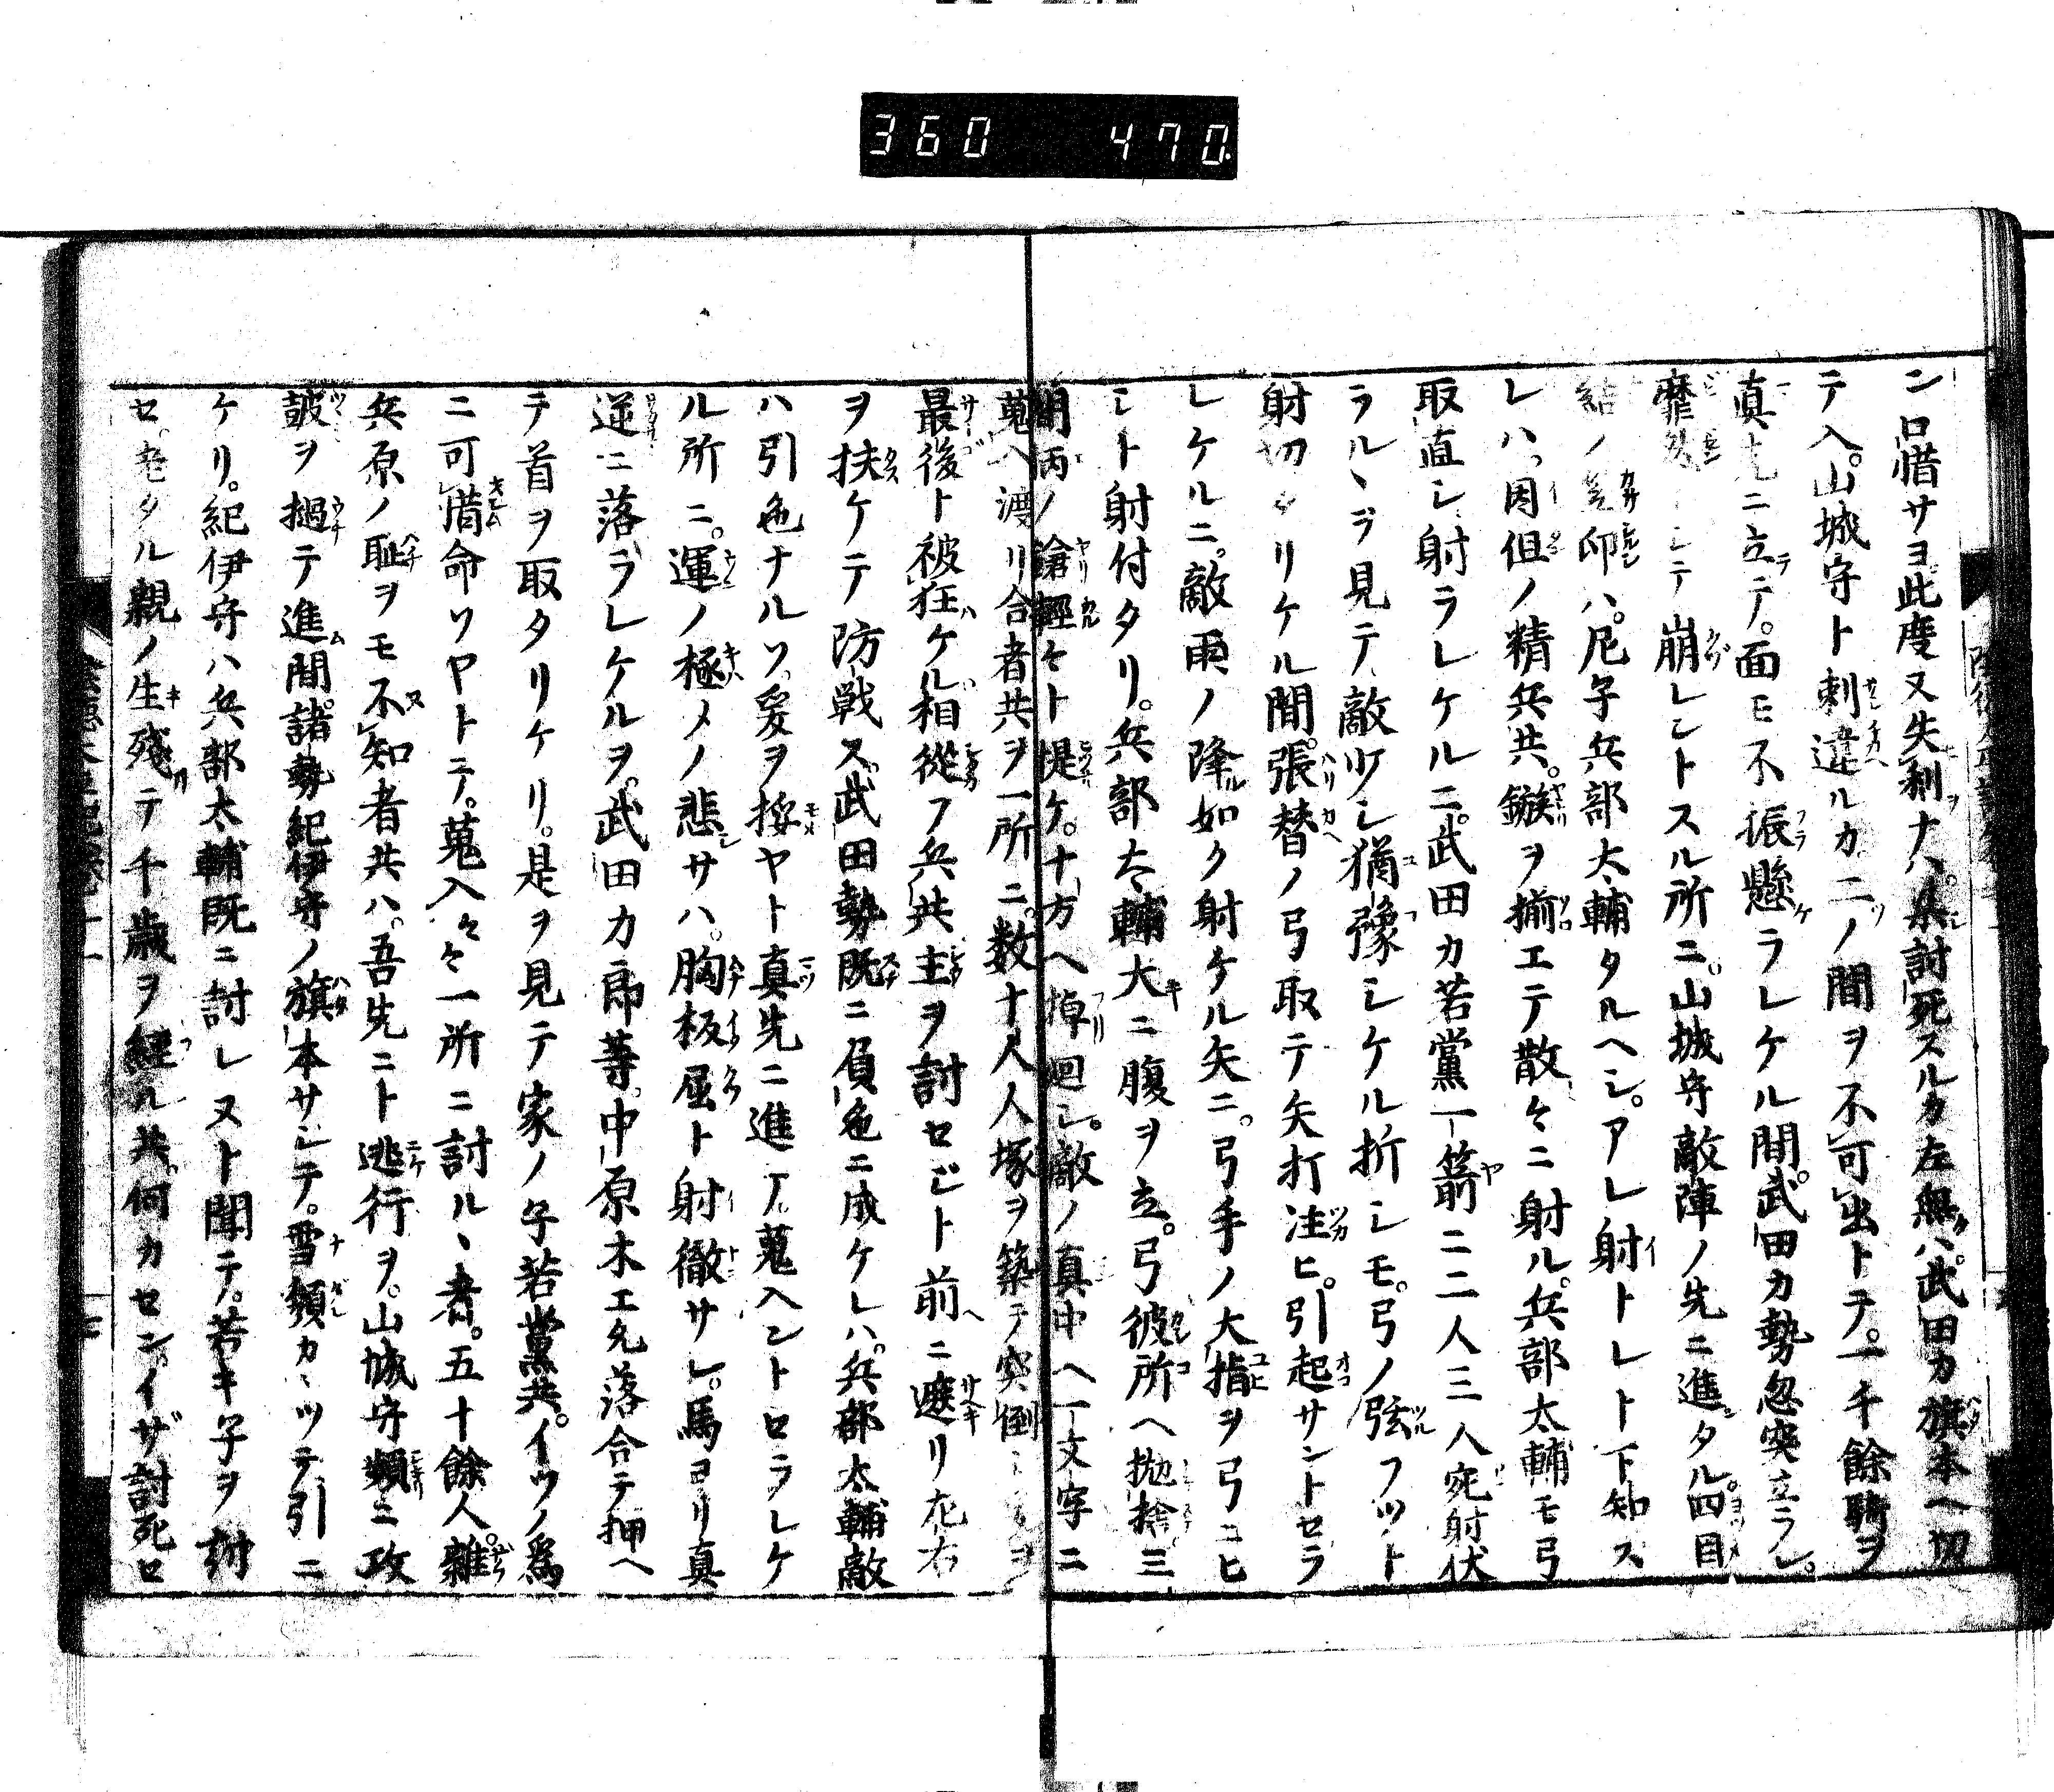 360 470
ン口惜サヨ此度又失利ナハ。討死スルカ左無ハ。武田カ旗本ヘ切
テ入。山城守ト刺違ルカ二ノ間ヲ不可出トテ。一千餘騎ヲ
真先ニ立テ。面モ不振懸ラレケル間。武田カ勢忽突立ラレ。
靡テ崩レントスル所ニ。山城守敵陣ノ先ニ進タル。四目
結ノ笠印ハ。尼子兵部太輔タルヘシ。アレ射トレト下知ス
レハ。因伹ノ精兵共。鏃ヲ揃エテ散々ニ射ル。兵部太輔モ弓
取直シ射ラレケルニ。武田カ若黨一箭ニ二人三人宛射伏
ラルヽヲ見テ敵少シ猶豫シケル折シモ。弓ノ弦フツト
射切タリケル間。張替ノ弓取テ矢打注ヒ。引起サントセラ
レケルニ。敵雨ノ降如ク射ケル矢ニ。弓手ノ大指ヲ弓ニヒ
シト射付タリ。兵部太輔大ニ腹ヲ立。弓彼所ヘ抛捨三
間柄ノ鎗輕々ト提ケ。十方ヘ悼廻シ。敵ノ真中ヘ一文字ニ
蒐ヘ渡リ合者共ヲ一所ニ。数十人人塚ヲ築テ突倒
最後ト被狂ケル相從フ兵共主ヲ討セジト前ニ遮リ左右
ヲ扶ケテ防戦ス。武田勢既ニ負色ニ成ケレハ。兵部太輔敵
ハ引色ナルソ。爰ヲ挼ヤト真先ニ進テ。蒐入ントロラレケ
ル所ニ。運ノ極メノ悲サハ。胸板屈ト射徹サレ。馬ヨリ真
逆ニ落ラレケルヲ。武田カ郎等。中原木工允落合テ押ヘ
テ首ヲ取タリケリ。是ヲ見テ家ノ子若黨共。イツノ爲
ニ可惜命ソヤトテ。蒐入々々一所ニ討ルヽ者。五十餘人。雜
兵原ノ恥ヲモ不知者共ハ。吾先ニト逃行ヲ。山城守頻ニ攻
皷ヲ撾テ進間。諸勢紀伊守ノ旗本サシテ。雪頽カヽツテ引ニ
ケリ。紀伊守ハ兵部太輔既ニ討レヌト聞テ。若キ子ヲ討
セ。老タル親ノ生残テ千歳ヲ経ル共。何カセン。イザ討死ロ